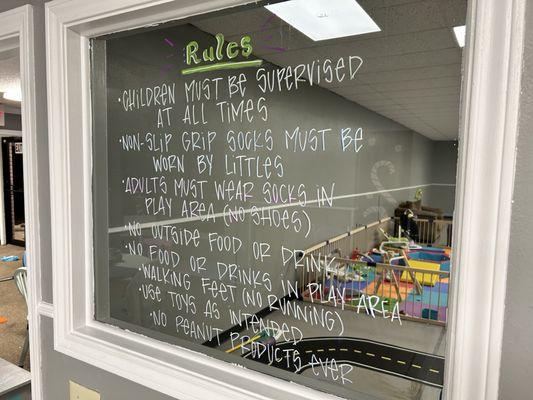 Rules
•CHILDREN MUST BE SUPERVISED
AT ALL TIMES
•NON-SLIP GRIP SOCKS MUST BE
WORN BY LITTLES
•ADULTS MUST WEAR SOCKS IN
PLAY AREA (NO SHOES)
•NO OUTSIDE FOOD OR DRINK
•NO FOOD OR DRINKS IN PLAY AREA
•WALKING FEET (NO RUNNING)
•USE TOYS AS INTENDED
•NO PEANUT PRODUCTS EVER